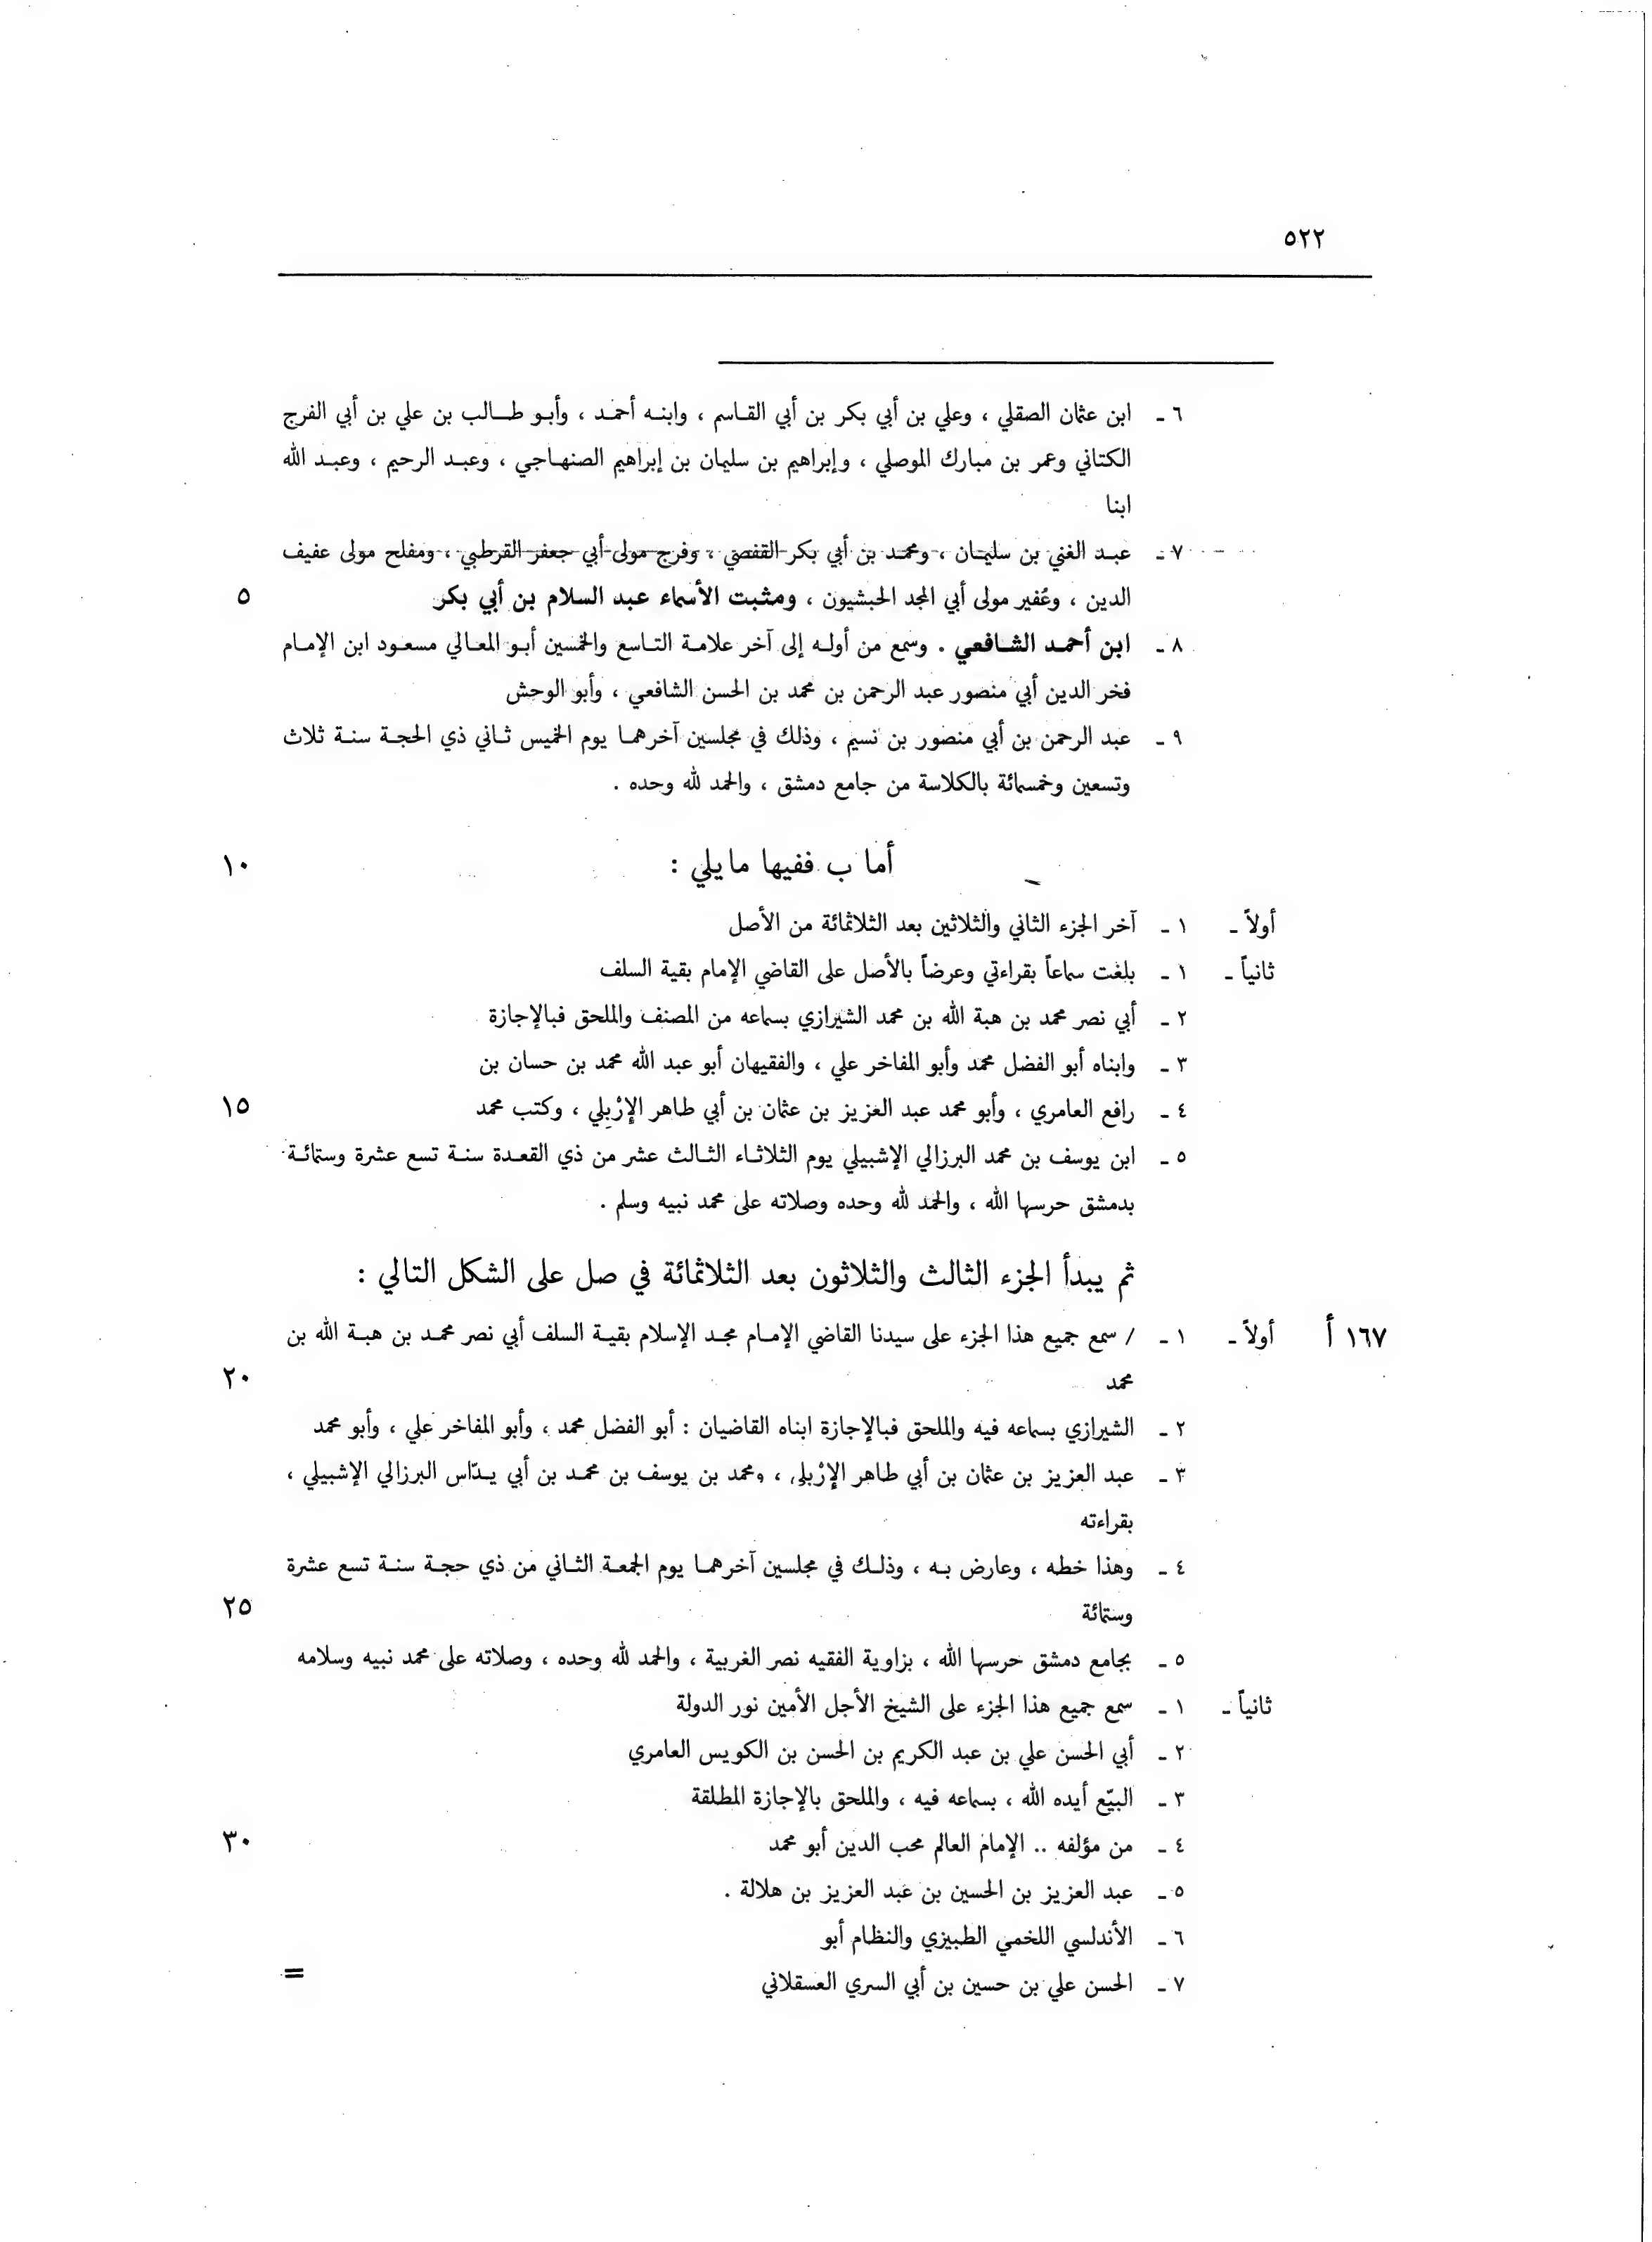 ٥٢٢
٦ ـ ابن عثمان الصقلي ، وعلي بن أبي بكر بن أبي القاسم ، وابنه أحمد ، وأبو طالب بن علي بن أبي الفرج
الكتاني وعمر بن مبارك الموصلي ، وإبراهيم بن سليمان بن إبراهيم الصنهاجي ، وعبد الرحيم ، وعبد الله
ابنا
٧ ـ عبد الغني بن سليمان ، ومحمد بن أبي بكر القفصي ، وفرج مولى أبي جعفر القرطبي ، ومفلح مولى عفيف
الدين ، وعُفير مولى أبي المجد الحبشيون ، ومثبت الأسماء عبد السلام بن أبي بكر ٥
٨ ـ ابن أحمد الشافعي . وسمع من أوله إلى آخر علامة التاسع والخمسين أبو المعالي مسعود ابن الإمام
فخر الدين أبي منصور عبد الرحمن بن محمد بن الحسن الشافعي ، وأبو الوحش
٩ ـ عبد الرحمن بن أبي منصور بن نسيم ، وذلك في مجلسين آخرهما يوم الخميس ثاني ذي الحجة سنة ثلاث
وتسعين وخمسمائة بالكلاسة من جامع دمشق ، والحمد لله وحده .
أما ب ففيها مايلي : ١٠
أولاً ـ ١ ـ آخر الجزء الثاني والثلاثين بعد الثلاثمائة من الأصل
ثانياً ـ ١ ـ بلغت سماعاً بقراءتي وعرضاً بالأصل على القاضي الإمام بقية السلف
٢ ـ أبي نصر محمد بن هبة الله بن محمد الشيرازي بسماعه من المصنف والملحق فبالإجازة
٣ ـ وابناه أبو الفضل محمد وأبو المفاخر علي ، والفقيهان أبو عبد الله محمد بن حسان بن
٤ ـ رافع العامري ، وأبو محمد عبد العزيز بن عثمان بن أبي طاهر الإرْبِلي ، وكتب محمد ١٥
٥ ـ ابن يوسف بن محمد البرزالي الإشبيلي يوم الثلاثاء الثالث عشر من ذي القعدة سنة تسع عشرة وستمائة
بدمشق حرسها الله ، والحمد لله وحده وصلاته على محمد نبيه وسلم .
ثم يبدأ الجزء الثالث والثلاثون بعد الثلاثمائة في صل على الشكل التالي :
١٦٧ أ أولاً ـ ١ ـ / سمع جميع هذا الجزء على سيدنا القاضي الإمام مجد الإسلام بقية السلف أبي نصر محمد بن هبة الله بن
محمد ٢٠
٢ ـ الشيرازي بسماعه فيه والملحق فبالإجازة ابناه القاضيان : أبو الفضل محمد ، وأبو المفاخر علي ، وأبو محمد
٣ ـ عبد العزيز بن عثمان بن أبي طاهر الإرْبلي ، ومحمد بن يوسف بن محمد بن أبي يدّاس البرزالي الإشبيلي ،
بقراءته
٤ ـ وهذا خطه ، وعارض به ، وذلك في مجلسين آخرهما يوم الجمعة الثاني من ذي حجة سنة تسع عشرة
وستمائة ٢٥
٥ ـ بجامع دمشق حرسها الله ، بزاوية الفقيه نصر الغربية ، والحمد لله وحده ، وصلاته على محمد نبيه وسلامه
ثانياً ـ ١ ـ سمع جميع هذا الجزء على الشيخ الأجل الأمين نور الدولة
٢ ـ أبي الحسن علي بن عبد الكريم بن الحسن بن الكويس العامري
٣ ـ البيّع أيده الله ، بسماعه فيه ، والملحق بالإجازة المطلقة
٤ ـ من مؤلفه .. الإمام العالم محب الدين أبو محمد ٣٠
٥ ـ عبد العزيز بن الحسين بن عبد العزيز بن هلالة .
٦ ـ الأندلسي اللخمي الطبيزي والنظام أبو
٧ ـ الحسن علي بن حسين بن أبي السري العسقلاني =